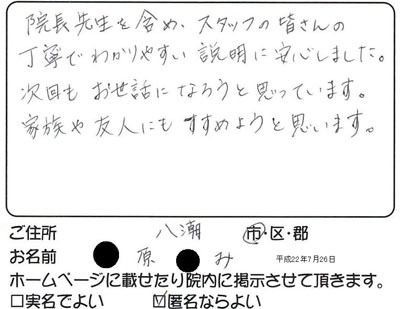 院長先生を含め、スタッフの皆さんの
丁寧でわかりやすい説明に安心しました。
次回もお世話になろうと思っています。
家族や友人にもすすめようと思います。
ご住所 八潮 市・区・郡
お名前 ●原●み 平成22年7月26日
ホームページに載せたり院内に掲示させて頂きます。
□実名でよい ☑匿名ならよい